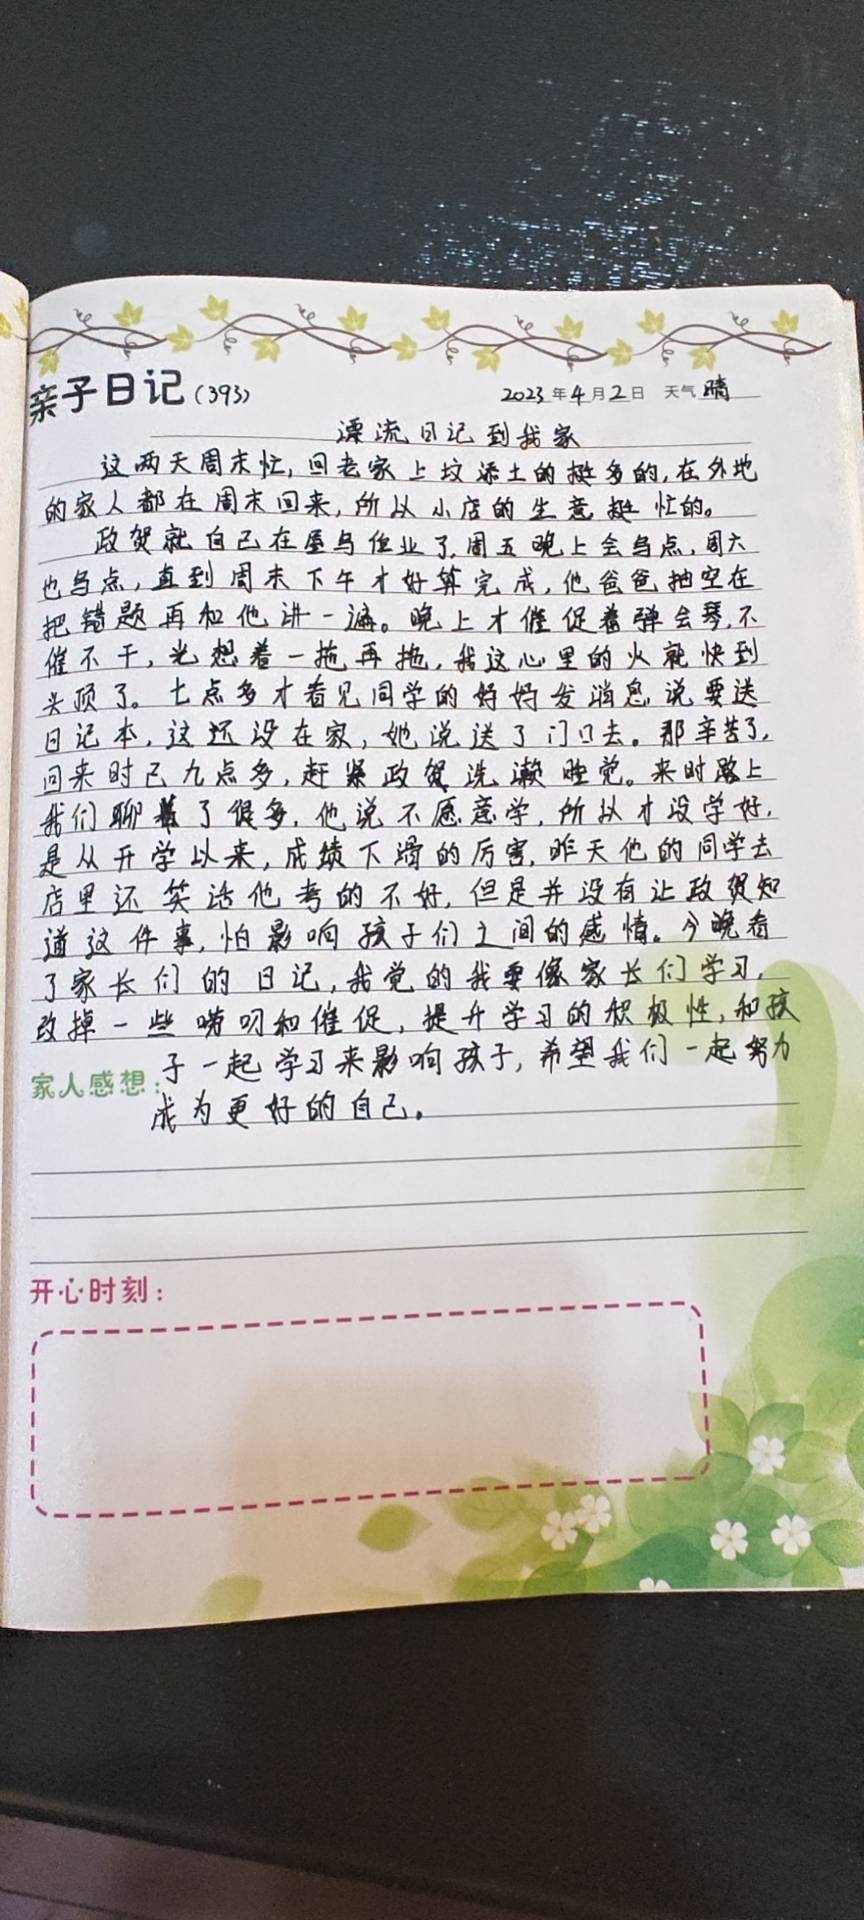 亲子日记(393) 2023年4月2日 天气 晴
漂流日记到我家
这两天周末忙,回老家上坟添土的挺多的,在外地
的家人都在周末回来,所以小店的生意挺忙的。
政贺就自己在屋写作业了,周五晚上会写点,周六
也写点,直到周末下午才好算完成,他爸爸抽空在
把错题再和他讲一遍。晚上才催促着弹会琴,不
催不干,光想着一拖再拖,我这心里的火就快到
头顶了。七点多才看见同学的妈妈发消息说要送
日记本,这还没在家,她说送了门口去。那辛苦了,
回来时已九点多,赶紧政贺洗漱睡觉。来时路上
我们聊着了很多,他说不愿意学,所以才没学好,
是从开学以来,成绩下滑的厉害,昨天他的同学去
店里还笑话他考的不好,但是并没有让政贺知
道这件事,怕影响孩子们之间的感情。今晚看
了家长们的日记,我觉的我要像家长们学习,
改掉一些唠叨和催促,提升学习的积极性,和孩
子一起学习来影响孩子,希望我们一起努力
家人感想:
成为更好的自己。
开心时刻: